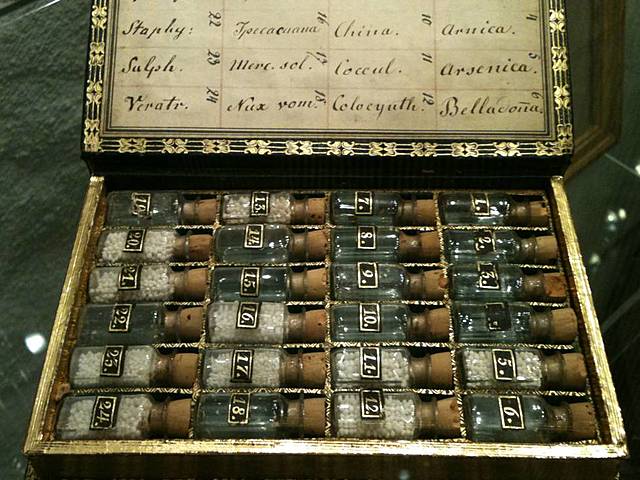 Staphy: 22 Ipecacuana 16 China. 10 Arnica. 4
Sulph. 23 Merc. sol. 17 Coccul. 11 Arsenica. 5
Veratr. 24 Nux vom. 18 Colocynth. 12 Belladoña. 6
19. 13. 7. 1.
20. 14. 8. 2.
21. 15. 9. 3.
22. 16. 10.
23. 17. 11. 5.
24. 18. 12. 6.